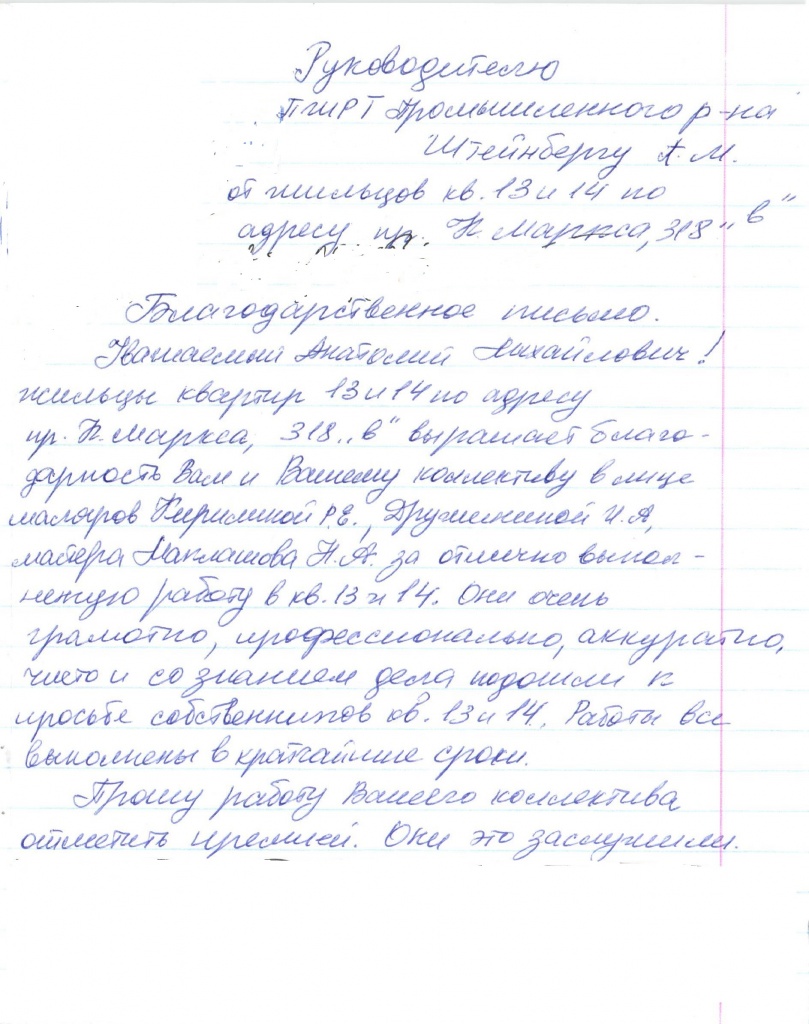 Руководителю
ПЖРТ Промышленного р-на
Штейнбергу А.М.
от жильцов кв. 13 и 14 по
адресу пр. К. Маркса, 318 „в“
Благодарственное письмо.
Уважаемый Анатолий Михайлович!
жильцы квартир 13 и 14 по адресу
пр. К. Маркса, 318 „в“ выражает благо-
дарность Вам и Вашему коллективу в лице
маляров Р.Е., Дружининой И.А,
мастера Маклашова Н.А. за отлично выпол-
неную работу в кв. 13 и 14. Они очень
грамотно, профессионально, аккуратно,
чисто и со знанием дела подошли к
просьбе собственников кв. 13 и 14. Работы все
выполнены в кратчайшие сроки.
Прошу работу Вашего коллектива
отметить премией. Они это заслужили.